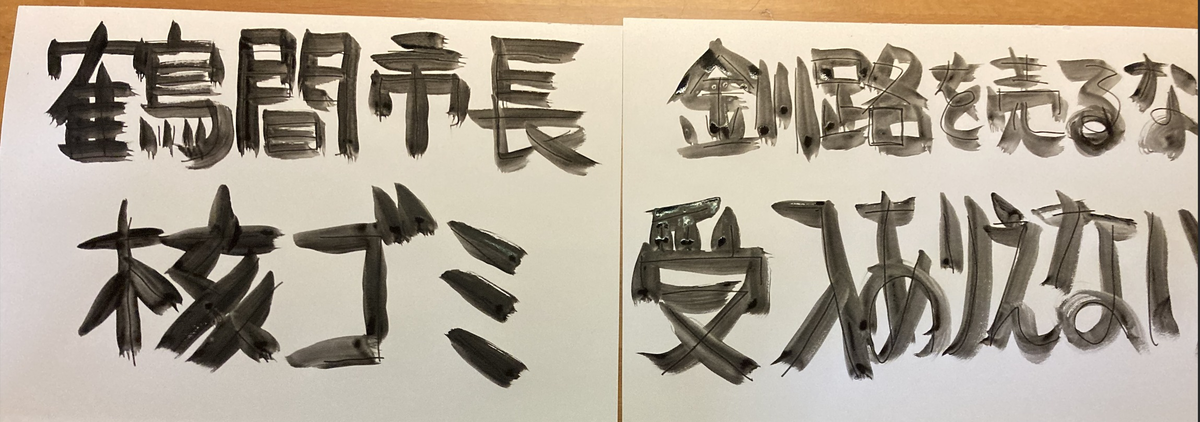 鶴間市長
核ゴミ
釧路を売るな
受入ありえない